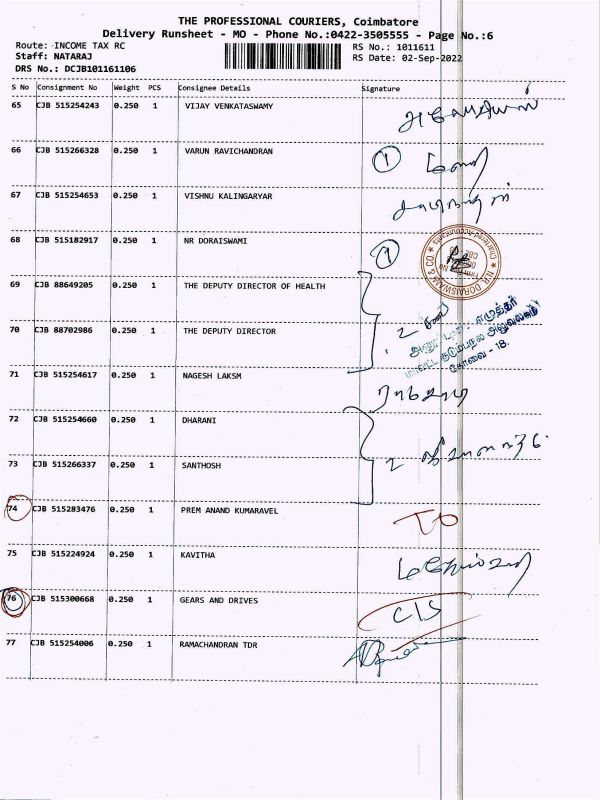 THE PROFESSIONAL COURIERS, Coimbatore
Delivery Runsheet - MO - Phone No.:0422-3505555 - Page No.:6
Route: INCOME TAX RC
RS No.: 1011611
Staff: NATARAJ
RS Date: 02-Sep-2022
DRS No.: DCJB101161106
S No Consignment No Weight PCS Consignee Details Signature
65 CJB 515254243 0.250 1 VIJAY VENKATASWAMY
66 CJB 515266328 0.250 1 VARUN RAVICHANDRAN 1
67 CJB 515254653 0.250 1 VISHNU KALINGARYAR
68 CJB 515182917 0.250 1 NR DORAISWAMI 1
N.R. DORAISWAMI & CO
Chartered Accountants
69 CJB 88649205 0.250 1 THE DEPUTY DIRECTOR OF HEALTH
2
70 CJB 88702986 0.250 1 THE DEPUTY DIRECTOR
கோவை - 18.
71 CJB 515254617 0.250 1 NAGESH LAKSM
72 CJB 515254660 0.250 1 DHARANI
2
73 CJB 515266337 0.250 1 SANTHOSH
74 CJB 515283476 0.250 1 PREM ANAND KUMARAVEL
75 CJB 515224924 0.250 1 KAVITHA
76 CJB 515300668 0.250 1 GEARS AND DRIVES C/S
77 CJB 515254006 0.250 1 RAMACHANDRAN TDR